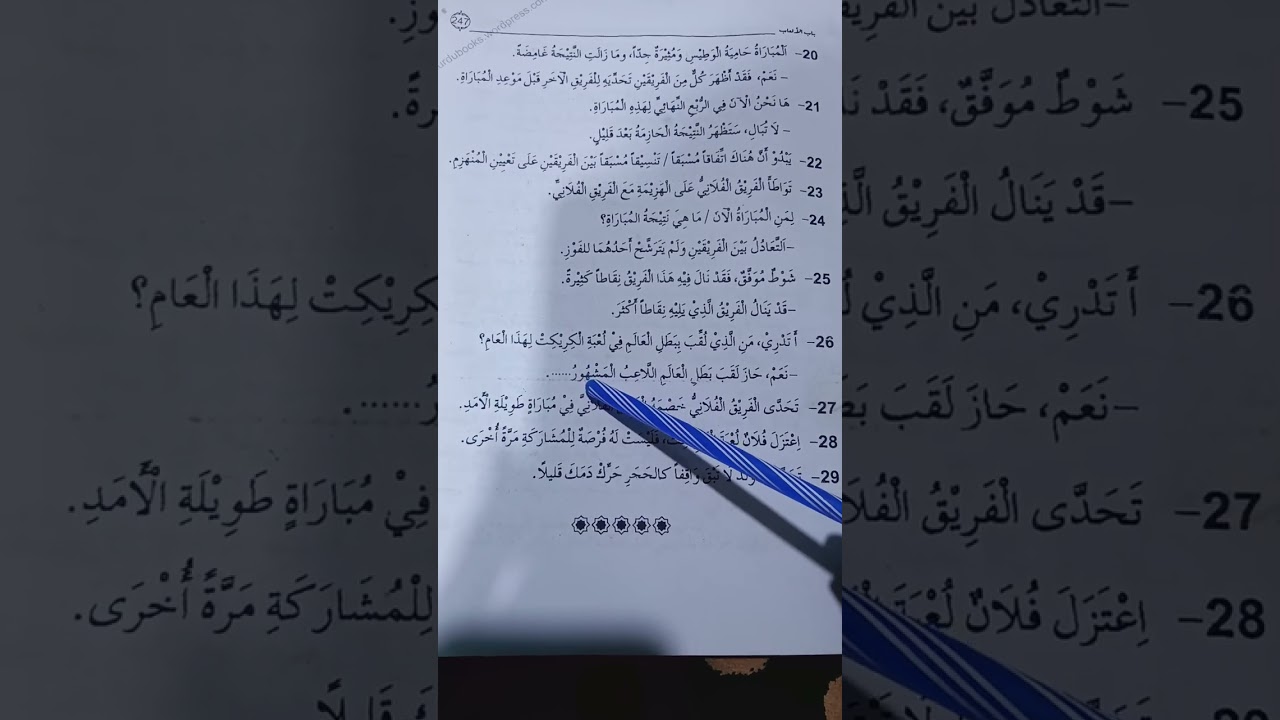 باب الألعاب
247
urdubooks.wordpress.com
20- اَلْمُبَارَاةُ حَامِيَةُ الْوَطِيْسِ وَمُثِيْرَةٌ جِدّاً، ومَا زَالَتِ النَّتِيْجَةُ غَامِضَةً.
- نَعَمْ، فَقَدْ أَظْهَرَ كُلٌّ مِنَ الْفَرِيْقَيْنِ تَحَدِّيَهِ لِلْفَرِيْقِ الْآخَرِ قَبْلَ مَوْعِدِ الْمُبَارَاةِ.
21- هَا نَحْنُ الْآنَ فِي الرُّبْعِ النِّهَائِيِّ لِهَذِهِ الْمُبَارَاةِ.
- لَا تُبَالِ، سَتَظْهَرُ النَّتِيْجَةُ الْحَازِمَةُ بَعْدَ قَلِيْلٍ.
22- يَبْدُوْ أَنَّ هُنَاكَ اتِّفَاقاً مُسْبَقاً / تَنْسِيْقاً مُسْبَقاً بَيْنَ الْفَرِيْقَيْنِ عَلَى تَعْيِيْنِ الْمُنْهَزِمِ.
23- تَوَاطَأَ الْفَرِيْقُ الْفُلَانِيُّ عَلَى الْهَزِيْمَةِ مَعَ الْفَرِيْقِ الْفُلَانِيِّ.
24- لِمَنِ الْمُبَارَاةُ الْآنَ / مَا هِيَ نَتِيْجَةُ المُبَارَاةِ؟
-اَلتَّعَادُلُ بَيْنَ الْفَرِيْقَيْنِ وَلَمْ يَتَرَشَّحْ أَحَدُهُمَا للفَوْزِ.
25- شَوْطٌ مُوَفَّقٌ، فَقَدْ نَالَ فِيْهِ هَذَا الْفَرِيْقُ نِقَاطاً كَثِيْرَةً.
-قَدْ يَنَالُ الْفَرِيْقُ الَّذِيْ يَلِيْهِ نِقَاطاً أَكْثَرَ.
26- أَ تَدْرِيْ، مَنِ الَّذِيْ لُقِّبَ بِبَطَلِ الْعَالَمِ فِيْ لُعْبَةِ الْكِرِيْكِتْ لِهَذَا الْعَامِ؟
-نَعَمْ، حَازَ لَقَبَ بَطَلِ الْعَالَمِ اللَّاعِبُ الْمَشْهُورُ.......
27- تَحَدَّى الْفَرِيْقُ الْفُلَانِيُّ خَصْمَهُ فِيْ مُبَارَاةٍ طَوِيْلَةِ الْأَمَدِ.
28- اِعْتَزَلَ فُلَانٌ لُعْبَةَ فَلَيْسَتْ لَهُ فُرْصَةٌ لِلْمُشَارَكَةِ مَرَّةً أُخْرَى.
29- لَا تَبْقَ وَاقِفاً كالحَجَرِ حَرِّكْ دَمَكَ قَلِيلًا.